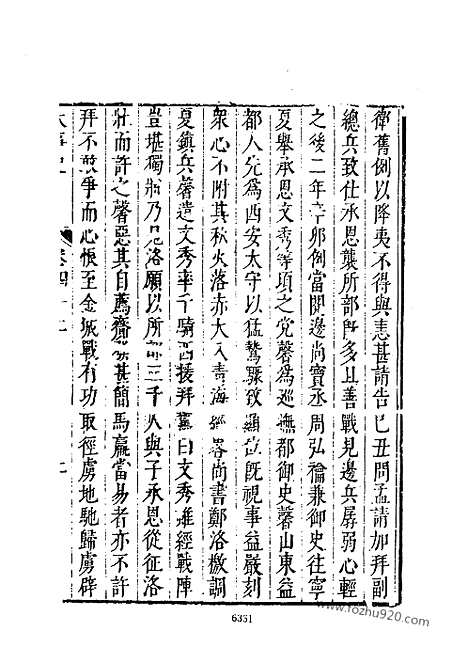 衛舊例以降夷不得與恚甚請告己丑間孟請加拜副
總兵致仕承恩襲所部旣多且善戰見邊兵孱弱心輕
之後二年辛卯例當閱邊尚寶丞周弘禴兼御史往寧
夏舉承恩文秀等頃之党馨爲巡撫都御史馨山東益
都人先爲西安太守以猛鷙驟致通顯旣視事益嚴刻
衆心不附其秋火落赤大入靑海經畧尚書鄭洛檄調
夏鎭兵馨遣文秀率千騎西援拜黨曰文秀雖經戰陣
豈堪獨將乃見洛願以所部三千人與子承恩從征洛
壯而許之馨惡其自薦齎 甚簡馬羸當易者亦不許
拜不敢爭而心恨至金城戰有功取徑虜地馳歸虜辟
卷四十二
6331
www.fozhu920.com